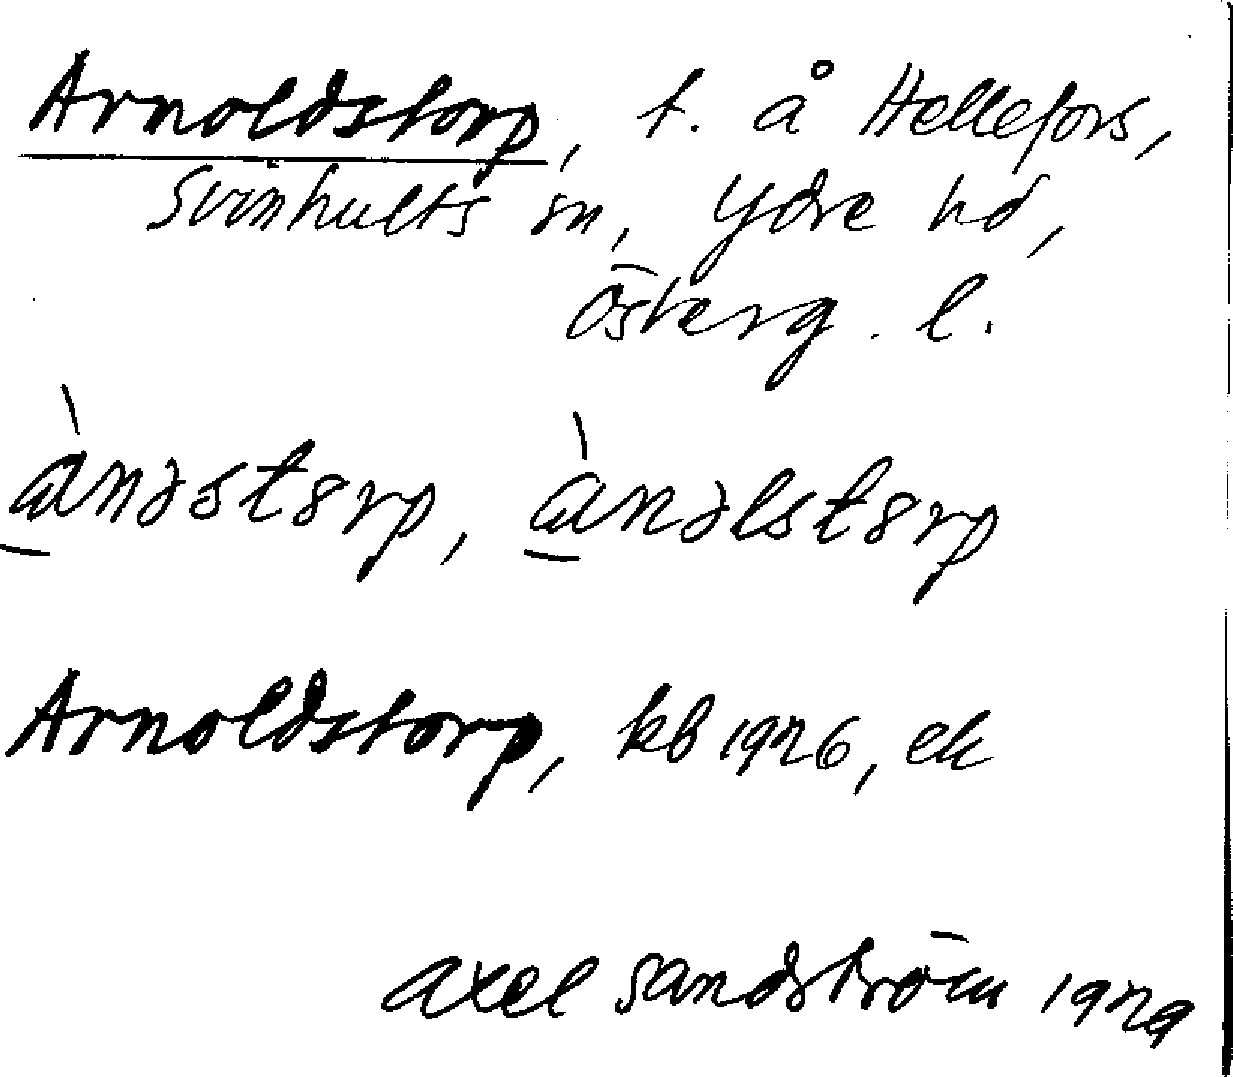 Arnoldstorp, t. å Hellefors,
Svinhults sn, Ydre hd,
Österg. l.
à̱nəstɞrp, à̱nəlstɞrp
Arnoldstorp, kb 1926, ek
Axel Sandström 1929